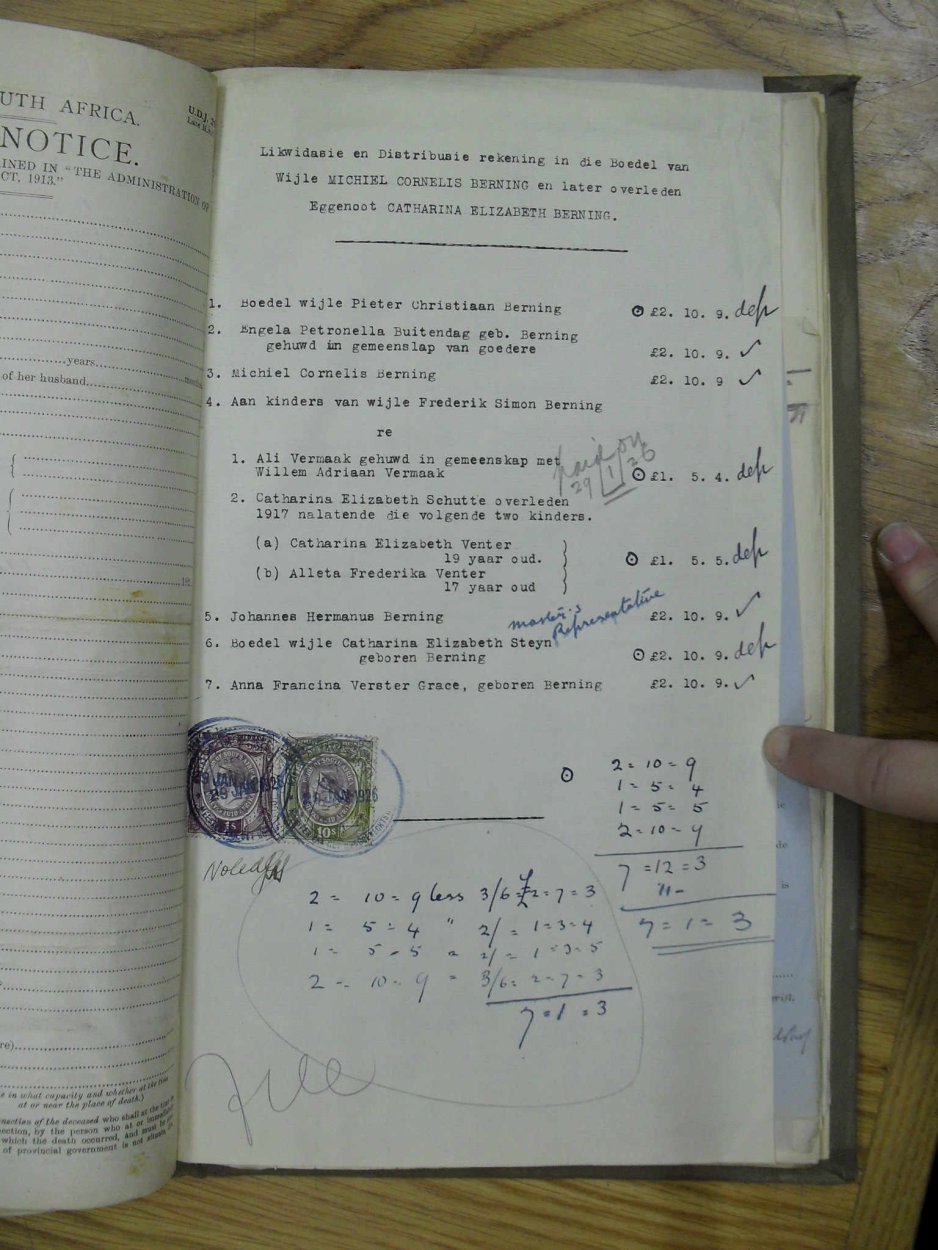 UTH AFRICA.
U.D.J.
NOTICE.
INED IN "THE ADMINISTRATION OF
CT, 1913."
years
of her husband
re)
e in what capacity and whether at the time
at or near the place of death.)
nnection of the deceased who shall at the time
ection, by the person who at or immediately
which the death occurred, And must be
of provincial government is not situate,
Likwidasie en Distribusie rekening in die Boedel van
Wijle MICHIEL CORNELIS BERNING en later overleden
Eggenoot CATHARINA ELIZABETH BERNING.
1. Boedel wijle Pieter Christiaan Berning £2. 10. 9. dep
2. Engela Petronella Buitendag geb. Berning
gehuwd in gemeenslap van goedere £2. 10. 9. ✓
3. Michiel Cornelis Berning £2. 10. 9 ✓
4. Aan kinders van wijle Frederik Simon Berning
re
paid on
29/1/26
1. Ali Vermaak gehuwd in gemeenskap met
Willem Adriaan Vermaak £1. 5. 4. dep
2. Catharina Elizabeth Schutte overleden
1917 nalatende die volgende two kinders.
(a) Catharina Elizabeth Venter
19 yaar oud. £1. 5. 5. dep
(b) Alleta Frederika Venter
17 yaar oud
5. Johannes Hermanus Berning £2. 10. 9. ✓
master's
Representative
6. Boedel wijle Catharina Elizabeth Steyn
geboren Berning £2. 10. 9. dep
7. Anna Francina Verster Grace, geboren Berning £2. 10. 9. ✓
29 JAN 1926
10s
Noted
2 = 10 = 9
1 = 5 = 4
1 = 5 = 5
2 = 10 = 9
7 = 12 = 3
11 -
7 = 1 = 3
2 = 10 = 9 less 3/6 = £2 = 7 = 3
1 = 5 = 4 " 2/ = 1 = 3 = 4
1 = 5 = 5 " 2/ = 1 = 3 = 5
2 = 10 = 9 = 3/6 = 2 = 7 = 3
7 = 1 = 3
File